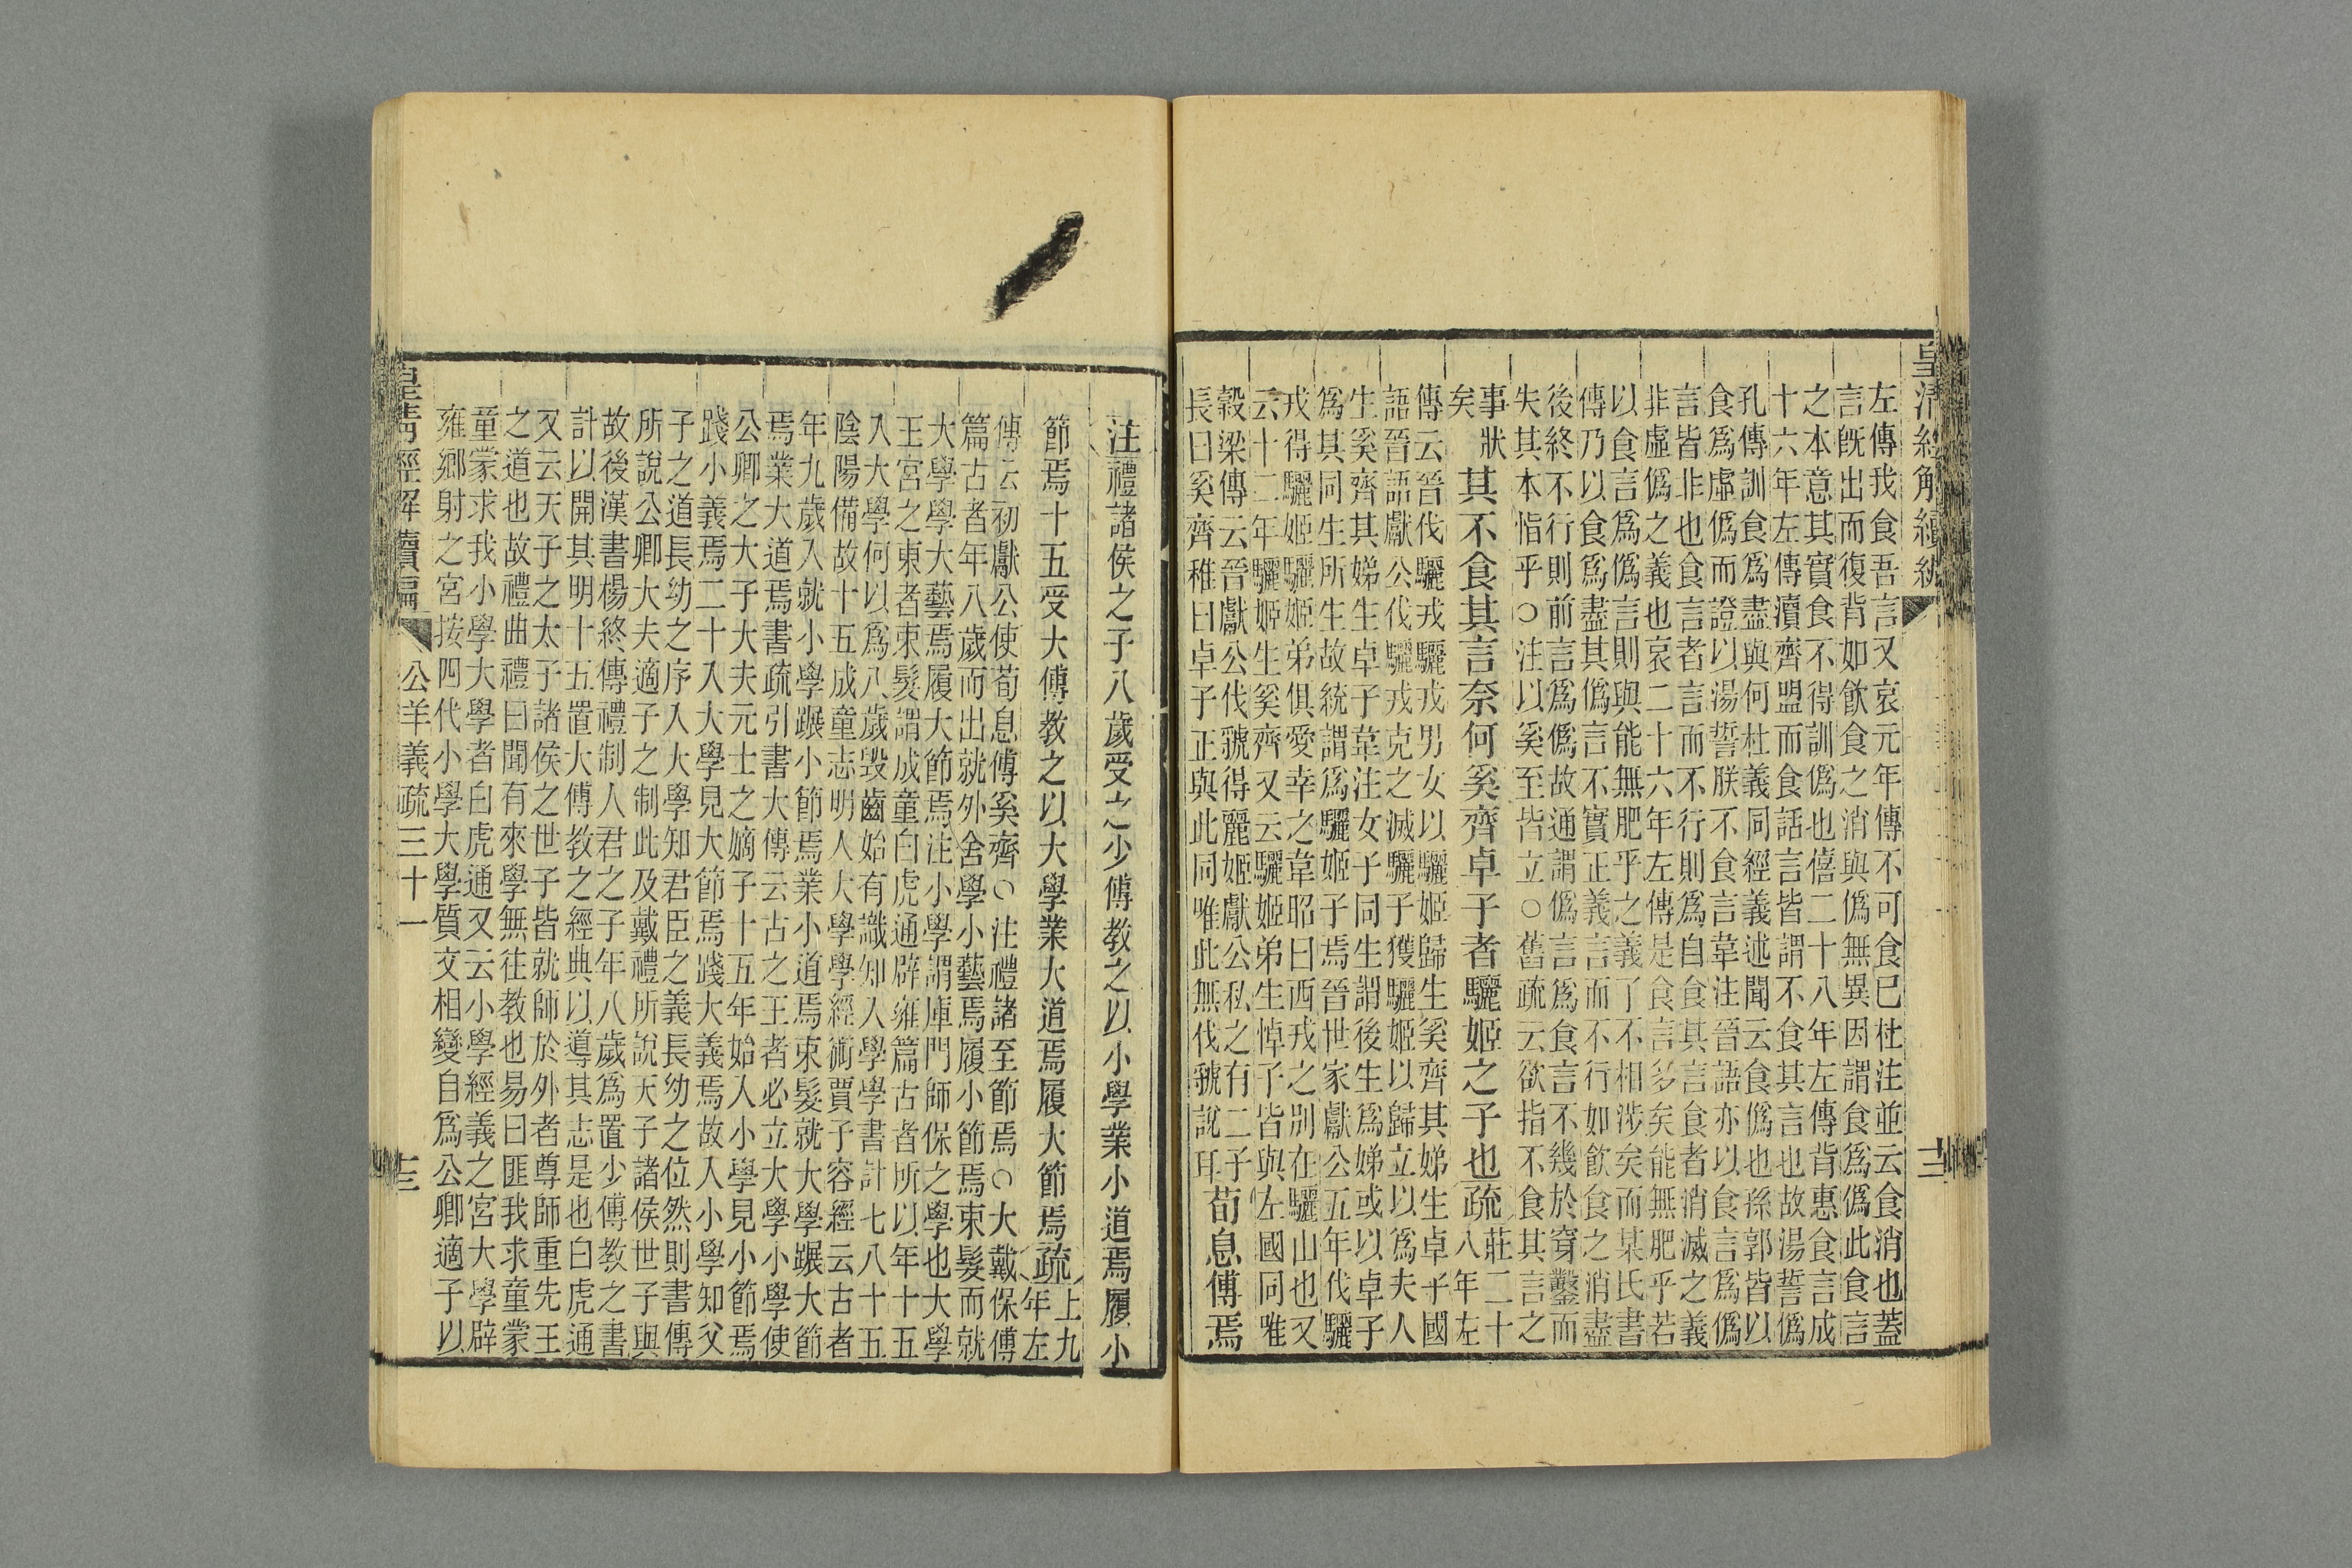 皇清經解續編
十二
左傳我食吾言又哀元年傳不可食已杜注並云食消也蓋
言既出而復背如飲食之消與僞無異因謂食爲僞此食言
之本意其實食不得訓僞也僖二十八年左傳背惠食言成
十六年左傳瀆齊盟而食話言皆謂不食其言也故湯誓僞
孔傳訓食爲盡與何杜義同經義述聞云食僞也孫郭皆以
食爲虛僞而證以湯誓朕不食言韋注晉語亦以食言爲僞
言皆非也食言者言而不行則爲自食其言食者消滅之義
非虛僞之義也哀二十六年左傳是食言多矣能無肥乎若
以食言爲僞言則與能無肥乎之義了不相涉矣而某氏書
傳乃以食爲盡其僞言不實正義言而不行如飲食之消盡
後終不行則前言爲僞故通謂僞言爲食言不幾於穿鑿而
失其本恉乎○注以奚至皆立○舊疏云欲指不食其言之
事狀
矣
其不食其言奈何奚齊卓子者驪姬之子也疏
莊二十
八年左
傳云晉伐驪戎驪戎男女以驪姬歸生奚齊其娣生卓子國
語晉語獻公伐驪戎克之滅驪子獲驪姬以歸立以爲夫人
生奚齊其娣生卓子韋注女子同生謂後生爲娣或以卓子
爲其同生所生故統謂爲驪姬子焉晉世家獻公五年伐驪
戎得驪姬驪姬弟俱愛幸之韋昭曰西戎之別在驪山也又
云十二年驪姬生奚齊又云驪姬弟生悼子皆與左國同唯
穀梁傳云晉獻公伐虢得麗姬獻公私之有二子
長曰奚齊稚曰卓子正與此同唯此無伐虢說耳
荀息傅焉
注禮諸侯之子八歲受之少傅教之以小學業小道焉履小
節焉十五受大傅教之以大學業大道焉履大節焉疏
上九
年左
傳云初獻公使荀息傅奚齊○注禮諸至節焉○大戴保傅
篇古者年八歲而出就外舍學小藝焉履小節焉束髮而就
大學學大藝焉履大節焉注小學謂庠門師保之學也大學
王宮之東者束髮謂成童白虎通辟雍篇古者所以年十五
入大學何以爲八歲毀齒始有識知入學學書計七八十五
陰陽備故十五成童志明入大學學經術賈子容經云古者
年九歲入就小學蹍小節焉業小道焉束髮就大學蹍大節
焉業大道焉書疏引書大傳云古之王者必立大學小學使
公卿之大子大夫元士之嫡子十五年始入小學見小節焉
踐小義焉二十入大學見大節焉踐大義焉故入小學知父
子之道長幼之序入大學知君臣之義長幼之位然則書傳
所說公卿大夫適子之制此及戴禮所說天子諸侯世子與
故後漢書楊終傳禮制人君之子年八歲爲置少傅教之書
計以開其明十五置大傅教之經典以導其志是也白虎通
又云天子之太子諸侯之世子皆就師於外者尊師重先王
之道也故禮曲禮曰聞有來學無往教也易曰匪我求童蒙
童蒙求我小學大學者白虎通又云小學經義之宮大學辟
雍鄉射之宮按四代小學大學質文相變自爲公卿適子以
皇清經解續編
公羊義疏三十一
十三